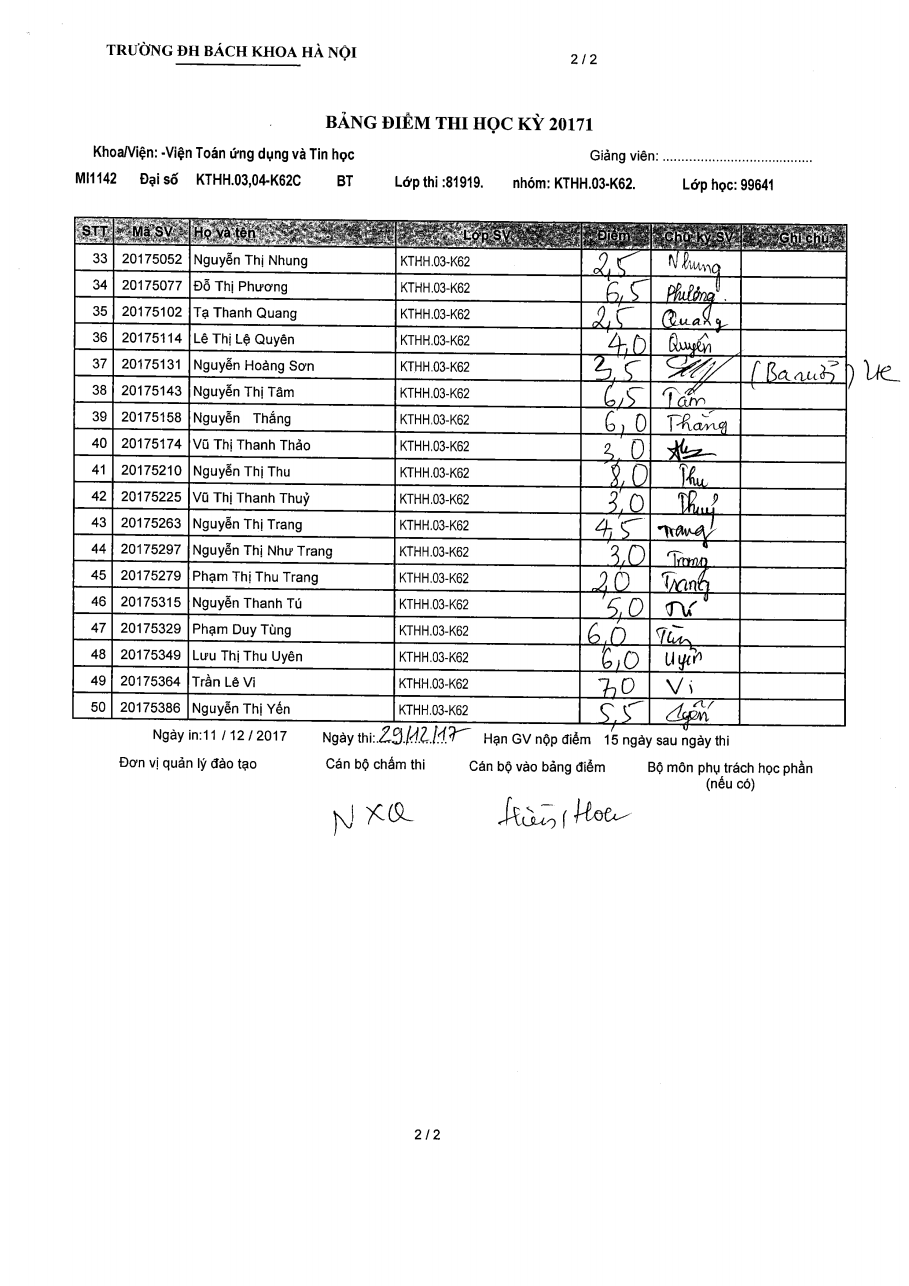 TRƯỜNG ĐH BÁCH KHOA HÀ NỘI
2 / 2
BẢNG ĐIỂM THI HỌC KỲ 20171
Khoa/Viện: -Viện Toán ứng dụng và Tin học Giảng viên: .......................................
MI1142 Đại số KTHH.03,04-K62C BT Lớp thi :81919. nhóm: KTHH.03-K62. Lớp học: 99641
STT Mã SV Họ và tên Lớp SV Điểm Chữ ký SV Ghi chú
33 20175052 Nguyễn Thị Nhung KTHH.03-K62 2,5 Nhung
34 20175077 Đỗ Thị Phương KTHH.03-K62 6,5 Phương
35 20175102 Tạ Thanh Quang KTHH.03-K62 2,5 Quang
36 20175114 Lê Thị Lệ Quyên KTHH.03-K62 4,0 Quyên
37 20175131 Nguyễn Hoàng Sơn KTHH.03-K62 3,5 (Ba rưỡi)
38 20175143 Nguyễn Thị Tâm KTHH.03-K62 6,5 Tâm
39 20175158 Nguyễn Thắng KTHH.03-K62 6,0 Thắng
40 20175174 Vũ Thị Thanh Thảo KTHH.03-K62 3,0
41 20175210 Nguyễn Thị Thu KTHH.03-K62 8,0 Thu
42 20175225 Vũ Thị Thanh Thuỷ KTHH.03-K62 3,0 Thuỷ
43 20175263 Nguyễn Thị Trang KTHH.03-K62 4,5 Trang
44 20175297 Nguyễn Thị Như Trang KTHH.03-K62 3,0 Trang
45 20175279 Phạm Thị Thu Trang KTHH.03-K62 2,0 Trang
46 20175315 Nguyễn Thanh Tú KTHH.03-K62 5,0 Tú
47 20175329 Phạm Duy Tùng KTHH.03-K62 6,0 Tùng
48 20175349 Lưu Thị Thu Uyên KTHH.03-K62 6,0 Uyên
49 20175364 Trần Lê Vi KTHH.03-K62 7,0 Vi
50 20175386 Nguyễn Thị Yến KTHH.03-K62 5,5 Yến
Ngày in:11 / 12 / 2017 Ngày thi: 29/12/17 Hạn GV nộp điểm 15 ngày sau ngày thi
Đơn vị quản lý đào tạo Cán bộ chấm thi Cán bộ vào bảng điểm Bộ môn phụ trách học phần
(nếu có)
NXQ Hiền, Hoa
2 / 2